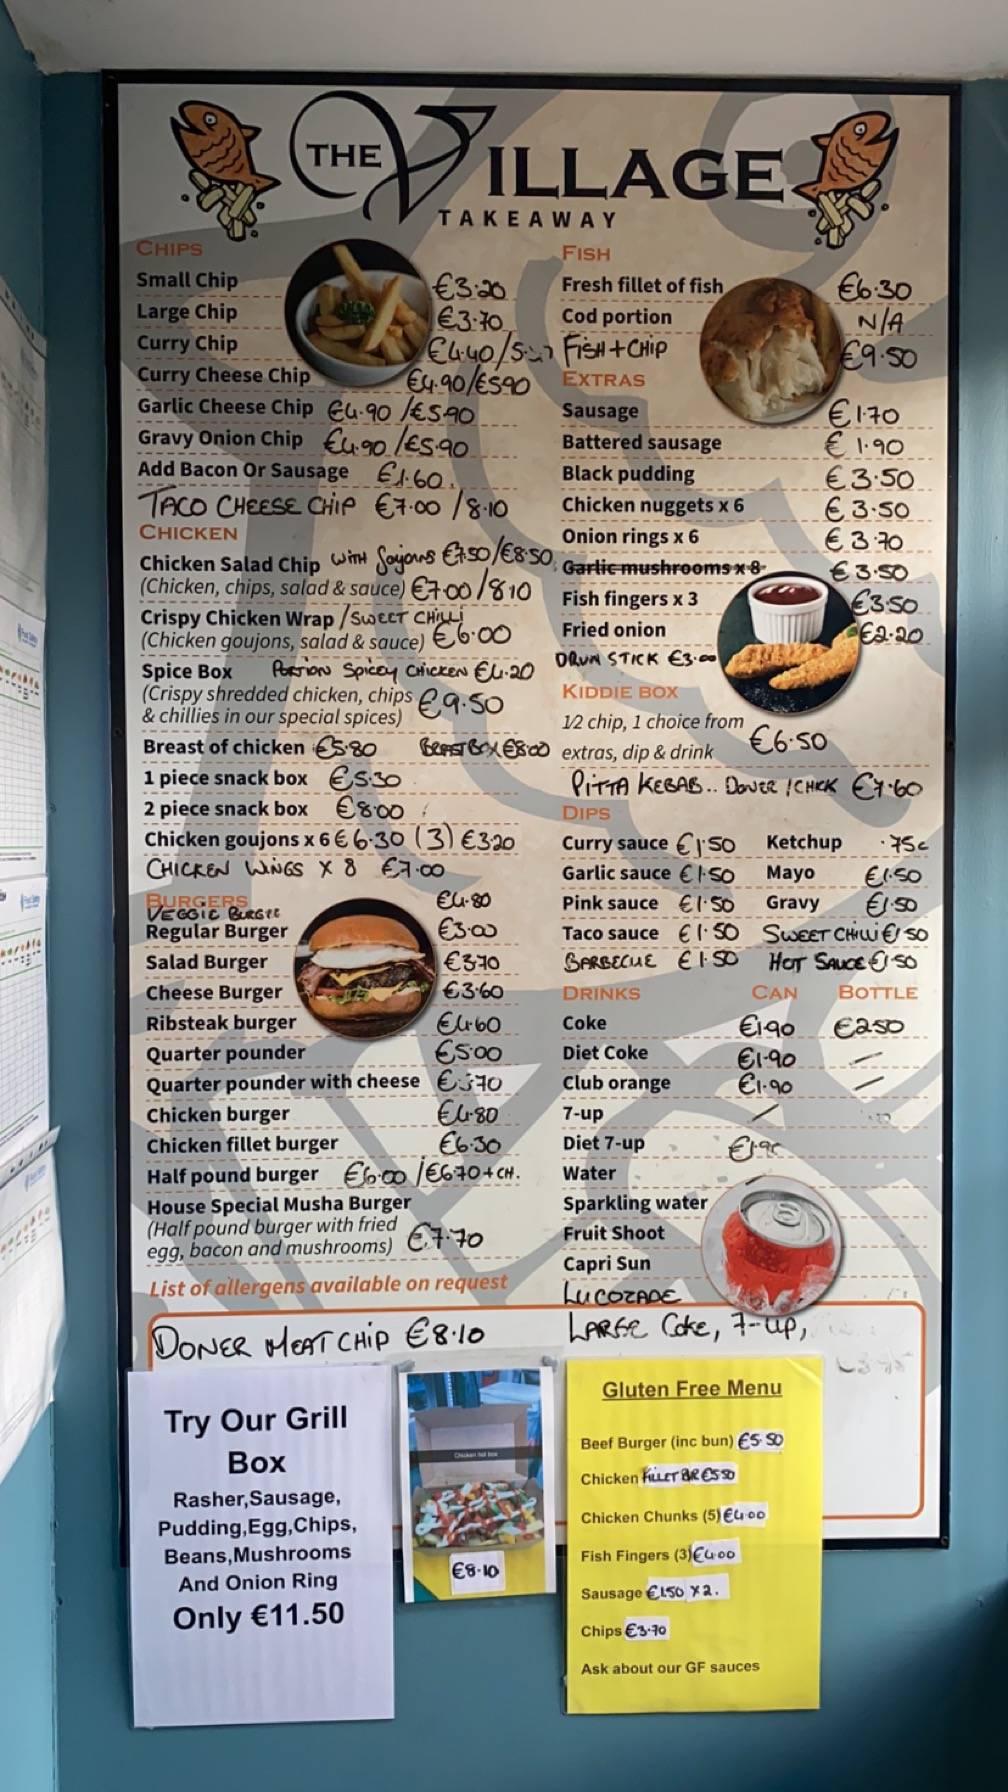 THE VILLAGE
TAKEAWAY
CHIPS
Small Chip €3.20
Large Chip €3.70
Curry Chip €4.40/5.
Curry Cheese Chip €4.90/€5.90
Garlic Cheese Chip €4.90/€5.90
Gravy Onion Chip €4.90/€5.90
Add Bacon Or Sausage €1.60
TACO CHEESE CHIP €7.00/8.10
CHICKEN
Chicken Salad Chip WITH Goujons €7.50/€8.50
(Chicken, chips, salad & sauce) €7.00/8.10
Crispy Chicken Wrap /SWEET CHILLI
(Chicken goujons, salad & sauce) €6.00
Spice Box PORTION SPICEY CHICKEN €4.20
(Crispy shredded chicken, chips €9.50
& chillies in our special spices)
Breast of chicken €5.80 BREASTBOX €8.00
1 piece snack box €5.30
2 piece snack box €8.00
Chicken goujons x 6 €6.30 (3) €3.20
CHICKEN WINGS X 8 €7.00
BURGERS
VEGGIE BURGER €4.80
Regular Burger €3.00
Salad Burger €3.70
Cheese Burger €3.60
Ribsteak burger €4.60
Quarter pounder €5.00
Quarter pounder with cheese €5.70
Chicken burger €4.80
Chicken fillet burger €6.30
Half pound burger €6.00/€6.70+CH.
House Special Musha Burger
(Half pound burger with fried €7.70
egg, bacon and mushrooms)
List of allergens available on request
FISH
Fresh fillet of fish €6.30
Cod portion N/A
FISH+CHIP €9.50
EXTRAS
Sausage €1.70
Battered sausage €1.90
Black pudding €3.50
Chicken nuggets x 6 €3.50
Onion rings x 6 €3.70
Garlic mushrooms x 8 €3.50
Fish fingers x 3 €3.50
Fried onion €2.20
DRUM STICK €3.00
KIDDIE BOX
1/2 chip, 1 choice from €6.50
extras, dip & drink
PITTA KEBAB.. DONER/CHICK €7.60
DIPS
Curry sauce €1.50 Ketchup .75c
Garlic sauce €1.50 Mayo €1.50
Pink sauce €1.50 Gravy €1.50
Taco sauce €1.50 SWEET CHILLI €1.50
BARBECUE €1.50 HOT SAUCE €1.50
DRINKS CAN BOTTLE
Coke €1.90 €2.50
Diet Coke €1.90 /
Club orange €1.90 /
7-up /
Diet 7-up
Water
Sparkling water
Fruit Shoot
Capri Sun
LUCOZADE
DONER MEAT CHIP €8.10
LARGE Coke, 7-up,
Try Our Grill
Box
Rasher,Sausage,
Pudding,Egg,Chips,
Beans,Mushrooms
And Onion Ring
Only €11.50
Chicken hot box
€8.10
Gluten Free Menu
Beef Burger (inc bun) €5.50
Chicken FILLET BUR €5.50
Chicken Chunks (5) €4.00
Fish Fingers (3) €4.00
Sausage €1.50 X 2.
Chips €3.70
Ask about our GF sauces